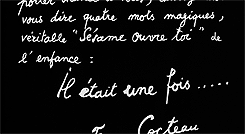 vous dire quatre mots magiques,
véritable "Sésame ouvre toi" de
l'enfance :
Il était une fois.....
Cocteau